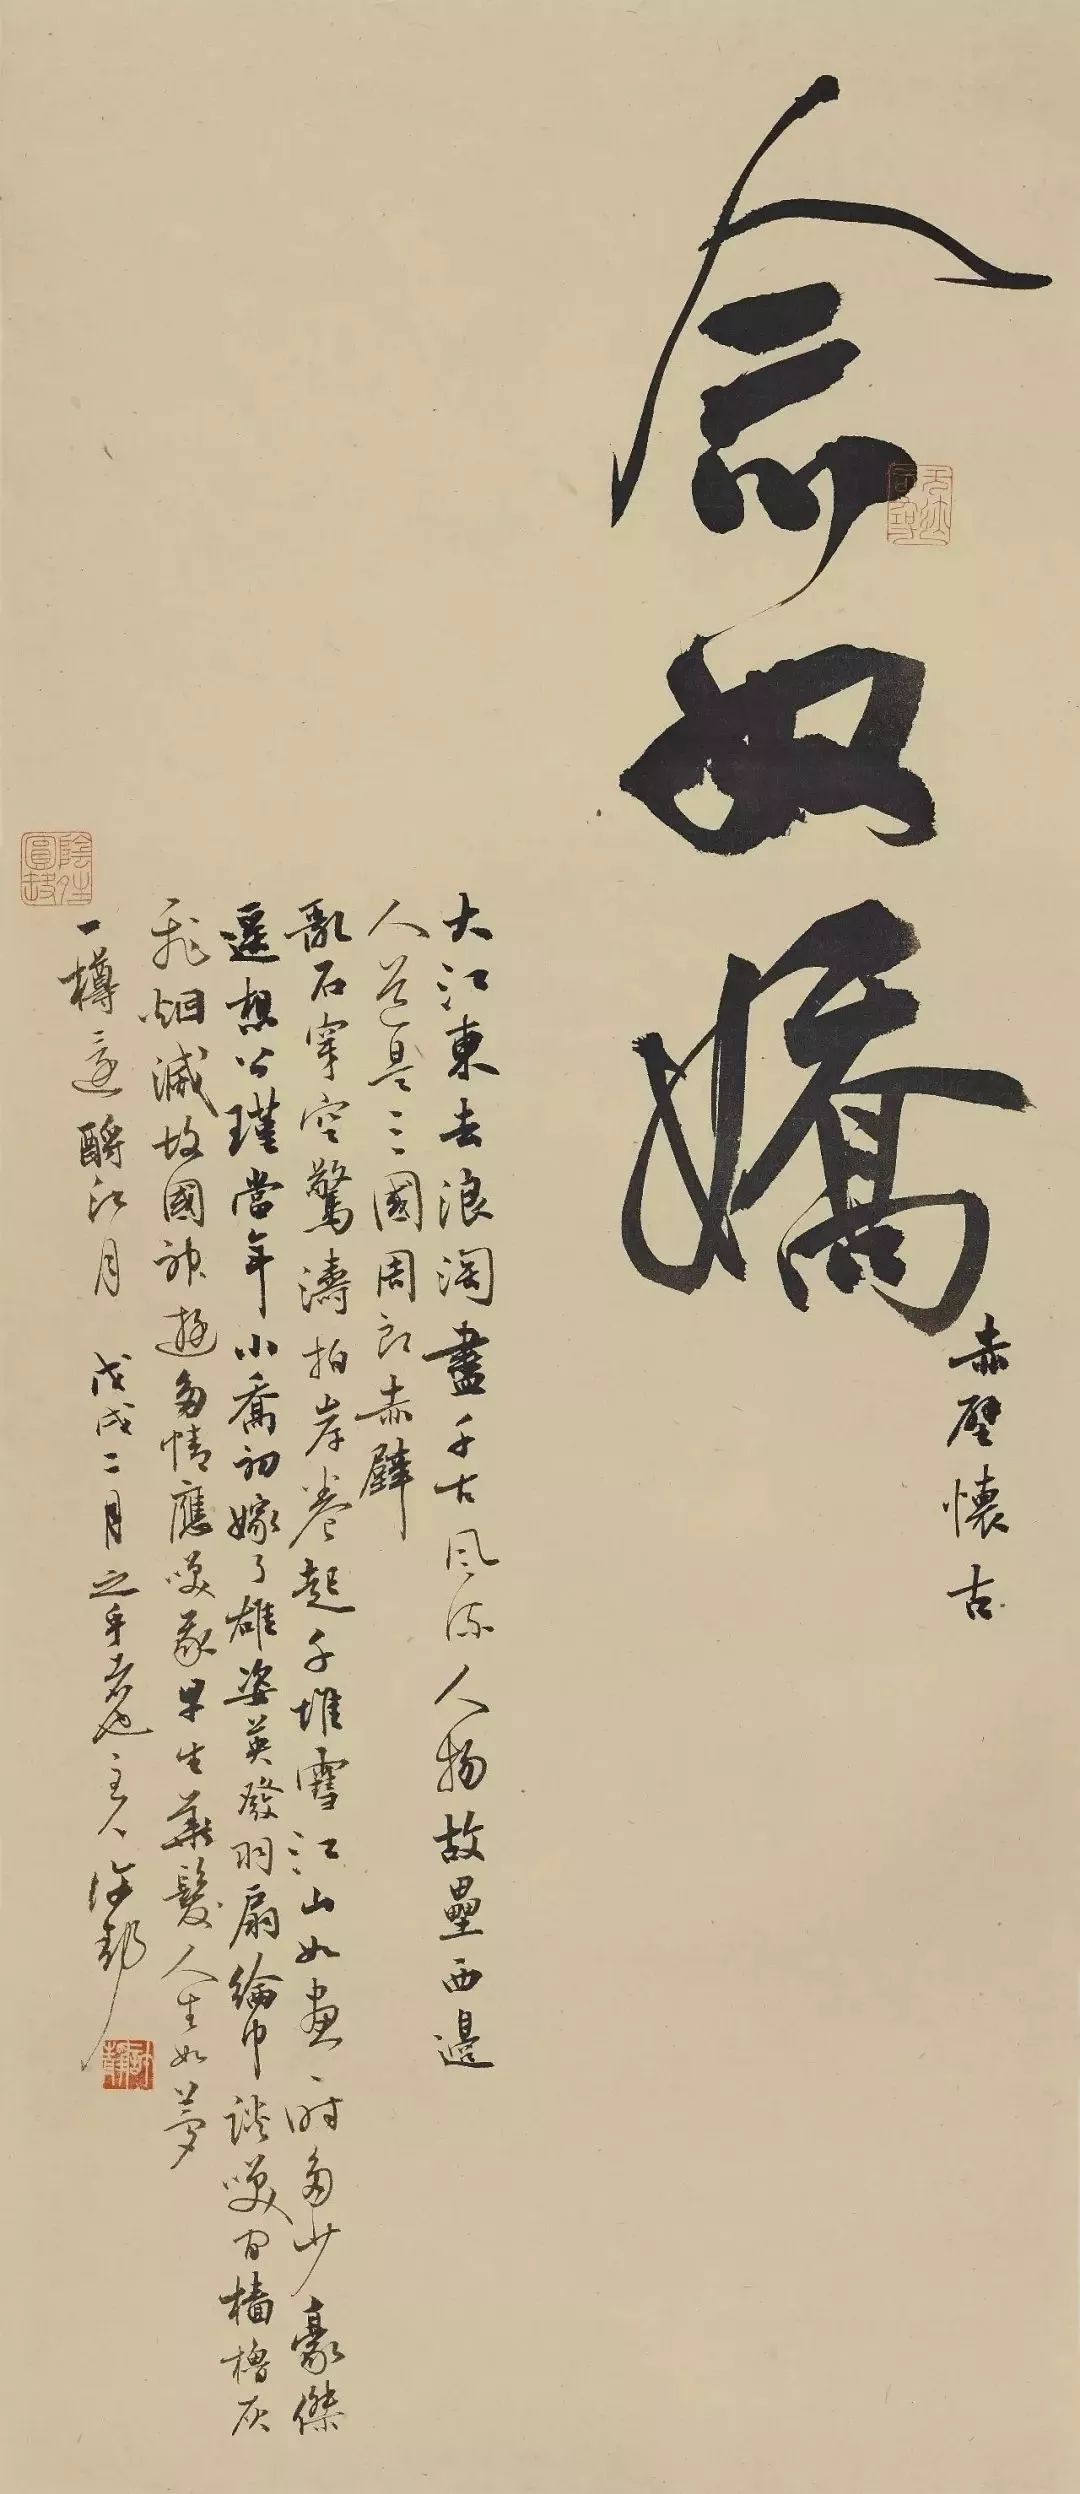 念奴嬌
赤壁懷古
大江東去浪淘盡千古風流人物故壘西邊
人道是三國周郎赤壁
亂石穿空驚濤拍岸卷起千堆雪江山如畫一時多少豪傑
遥想公瑾當年小喬初嫁了雄姿英發羽扇綸巾談笑间檣櫓灰
飛烟滅故國神遊多情應笑我早生華髮人生如夢
一樽還酹江月 戊戌二月之
主人許静